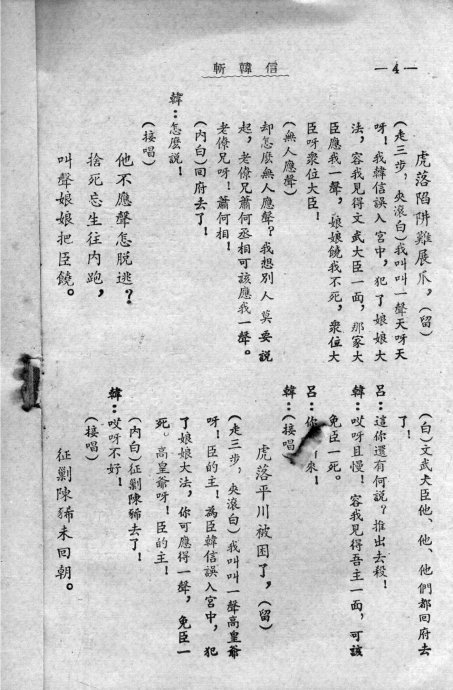 —4—
斬韓信
虎落陷阱難展爪，（留）
（走三步，夾滾白）我叫叫一聲天呀天
呀！我韓信誤入宮中，犯了娘娘大
法，容我見得文武大臣一面，那家大
臣應我一聲，娘娘饒我不死，衆位大
臣呀衆位大臣！
（無人應聲）
却怎麽無人應聲？我想別人莫要說
起，老倷兄蕭何丞相可該應我一聲。
老倷兄呀！蕭何相！
（內白）回府去了！
韓：怎麽說！
（接唱）
他不應聲怎脫逃？
捨死忘生往內跑，
叫聲娘娘把臣饒。
（白）文武大臣他、他、他們都回府去
了！
呂：這你還有何說？推出去殺！
韓：哎呀且慢！容我見得吾主一面，可該
免臣一死。
呂：你 來！
韓：（接唱）
虎落平川被困了，（留）
（走三步，夾滾白）我叫叫一聲高皇爺
呀！臣的主！爲臣韓信誤入宮中，犯
了娘娘大法，你可應得一聲，免臣一
死。高皇爺呀！臣的主！
（內白）征剿陳豨去了！
韓：哎呀不好！
（接唱）
征剿陳豨未回朝。